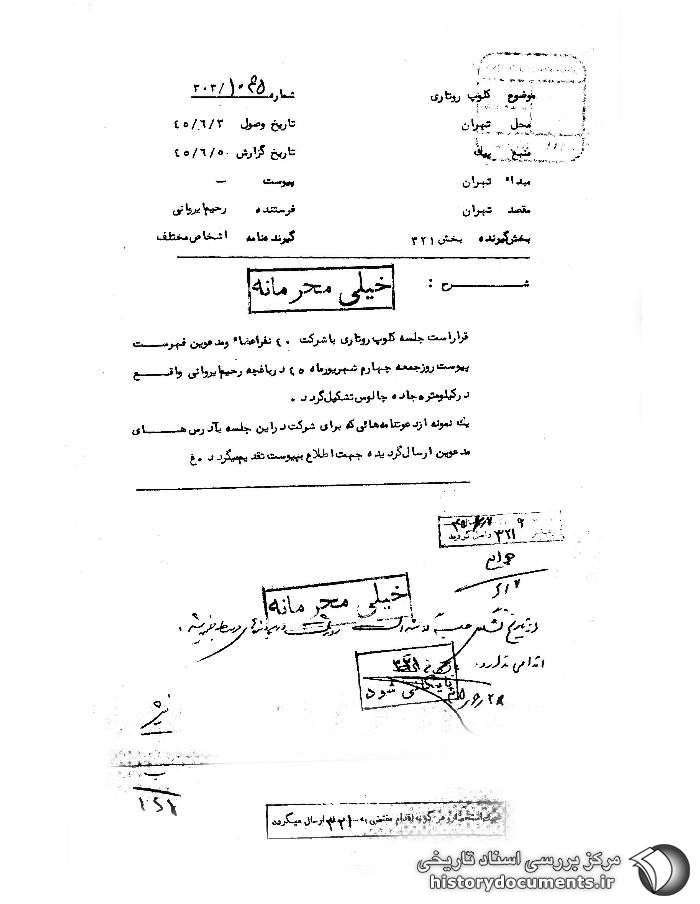 موضوع کلوپ روتاری
شماره ۳۰۳/
محل تهران
تاریخ وصول ۴۵/۶/۳
منبع
تاریخ گزارش ۴۵/۶/۵
مبداء تهران
پیوست –
مقصد تهران
فرستنده رحیم ایروانی
بخش گیرنده بخش ۳۲۱
گیرنده نامه اشخاص مختلف
شرح :
خیلی محرمانه
قرار است جلسه کلوپ روتاری با شرکت ۴۰ نفر اعضاء و مدعوین فهرست
پیوست روز جمعه چهارم شهریور ماه ۴۵ در باغچه رحیم ایروانی واقع
در کیلومتر ۵ جاده چالوس تشکیل گردد .
یک نمونه از دعوتنامه هائی که برای شرکت در این جلسه بآدرس های
مدعوین ارسال گردیده جهت اطلاع بپیوست تقدیم میگردد . غ
۳۲۱
خیلی محرمانه
از تاریخ تشکیل جلسه
اقدامی ندارد.
۳۲۱
بایگانی شود
هر گونه اقدام مقتضی به ۳۲۱ ارسال میگردد
مرکز بررسی اسناد تاریخی
historydocuments.ir